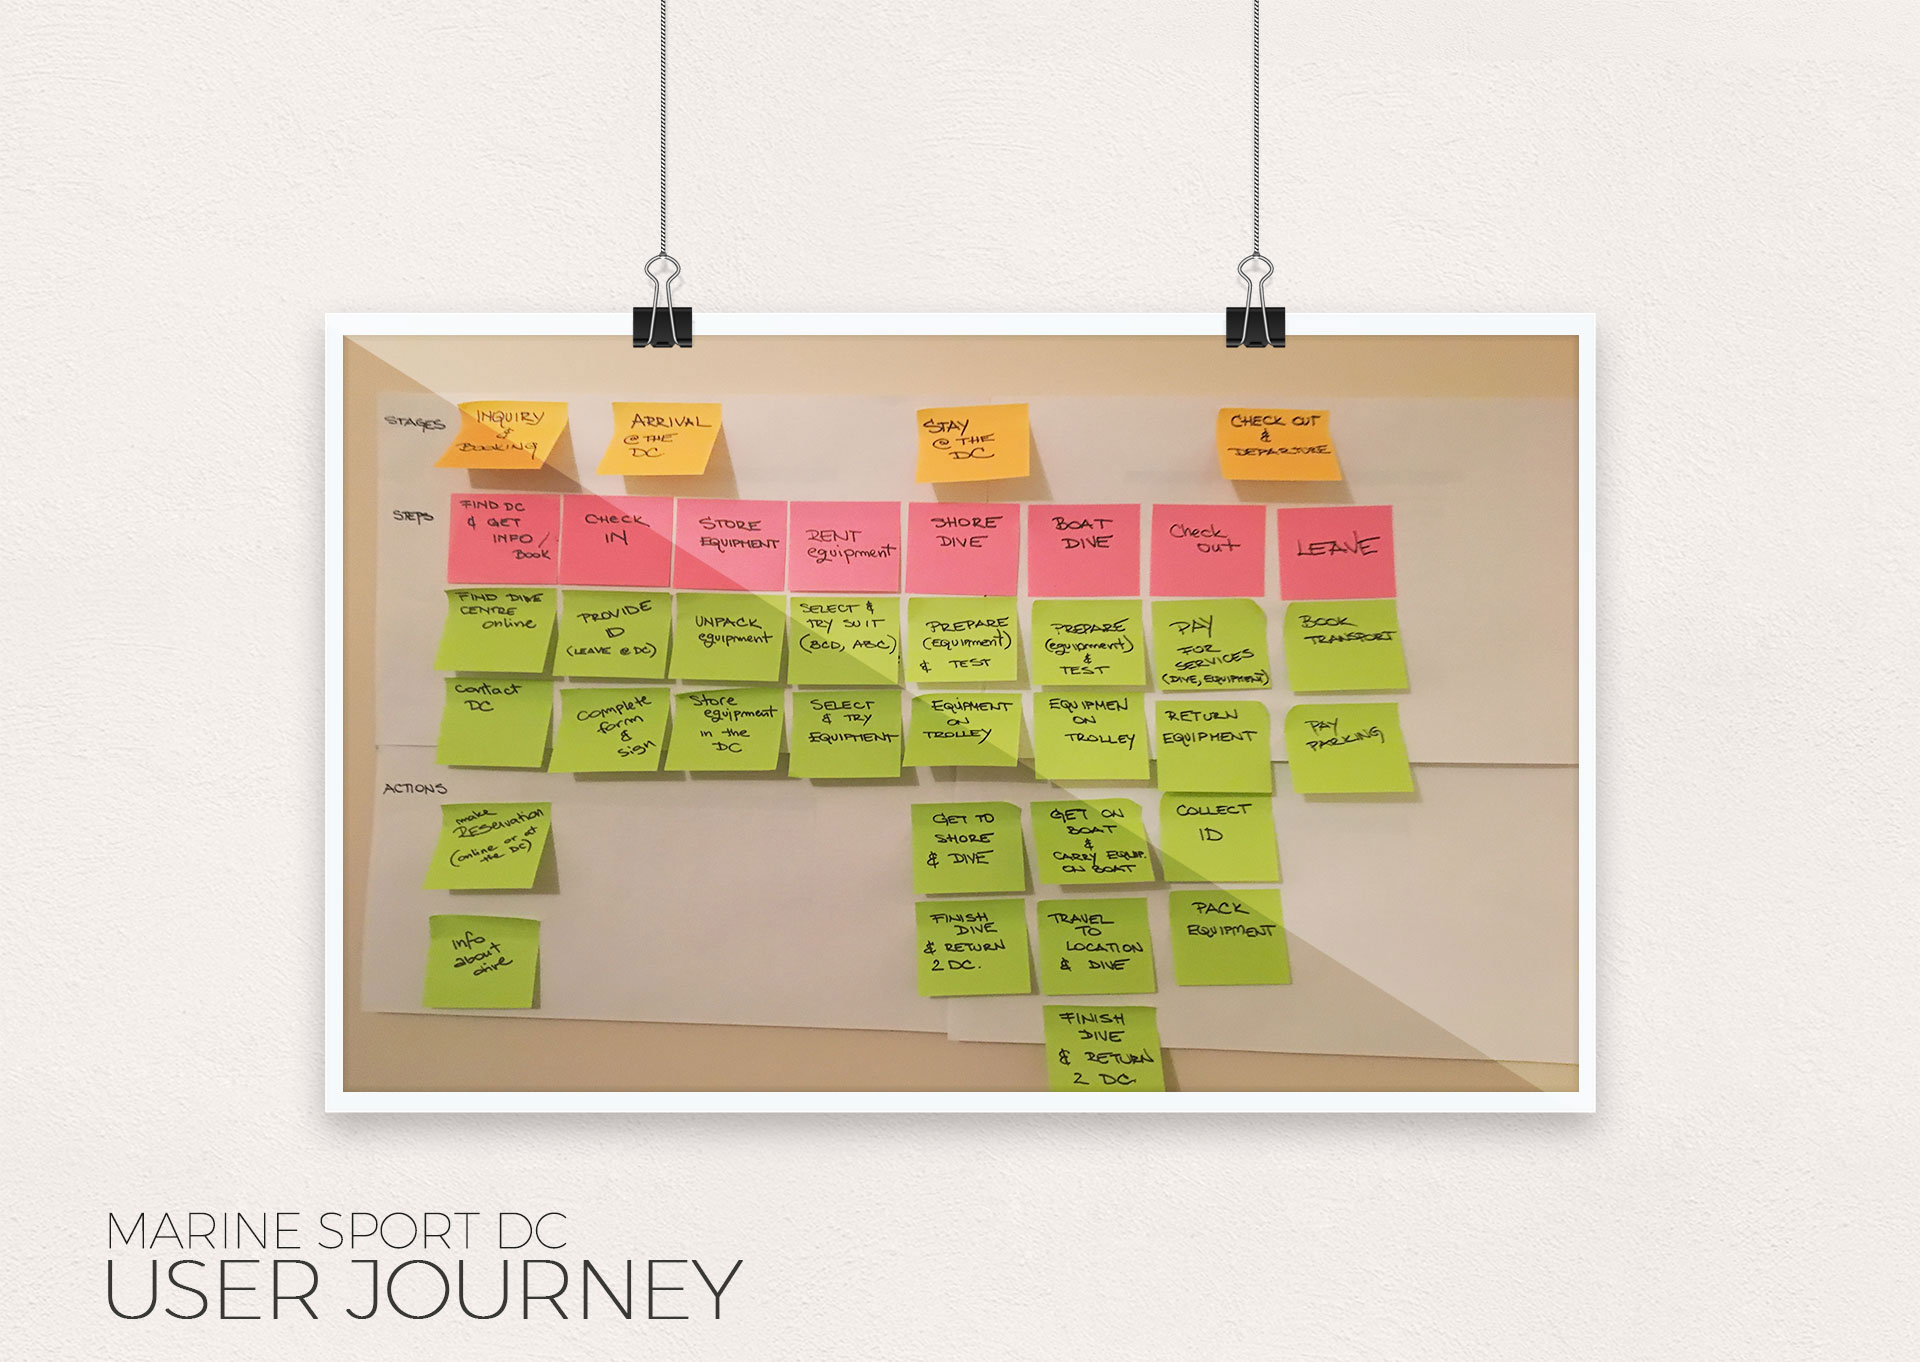 STAGES
INQUIRY
&
BOOKING
ARRIVAL
@ THE
DC
STAY
@ THE
DC
CHECK OUT
&
DEPARTURE
STEPS
FIND DC
& GET
INFO /
BOOK
CHECK
IN
STORE
EQUIPMENT
RENT
equipment
SHORE
DIVE
BOAT
DIVE
Check
out
LEAVE
FIND DIVE
CENTRE
online
PROVIDE
ID
(LEAVE @ DC)
UNPACK
equipment
SELECT &
TRY SUIT
(BCD, ABC)
PREPARE
(EQUIPMENT)
& TEST
PREPARE
(equipment)
&
TEST
PAY
FOR
SERVICES
(DIVE, EQUIPMENT)
BOOK
TRANSPORT
Contact
DC
Complete
form
&
sign
Store
equipment
in the
DC
SELECT
& TRY
EQUIPMENT
EQUIPMENT
ON
TROLLEY
EQUIPMEN
ON
TROLLEY
RETURN
EQUIPMENT
PAY
PARKING
ACTIONS
make
RESERVATION
(online or at
the DC)
GET TO
SHORE
& DIVE
GET ON
BOAT
&
CARRY EQUIP.
ON BOAT
COLLECT
ID
info
about
dive
FINISH
DIVE
& RETURN
2 DC.
TRAVEL
TO
LOCATION
& DIVE
PACK
EQUIPMENT
FINISH
DIVE
& RETURN
2 DC
MARINE SPORT DC
USER JOURNEY